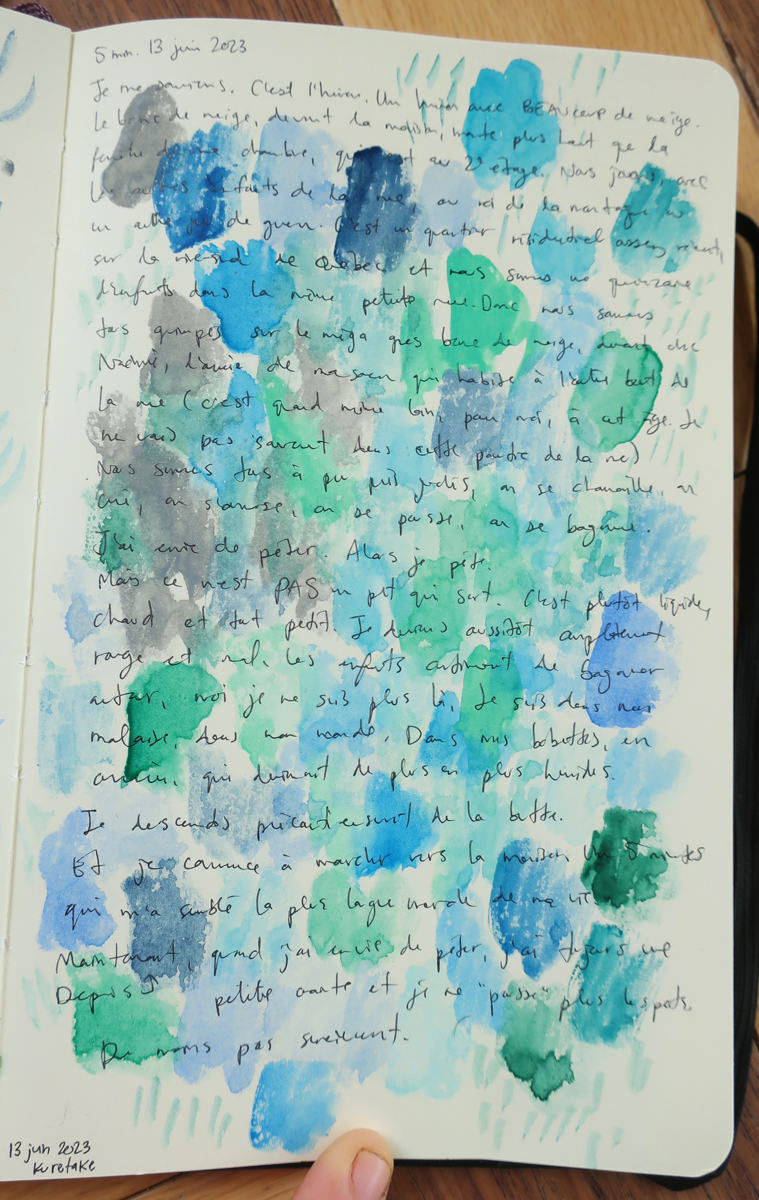 5 min. 13 juin 2023
Je me souviens. C'est l'hiver. Un hiver avec BEAUCOUP de neige.
Le banc de neige, devant la maison, monte plus haut que la
fenêtre de ma chambre, qui est au 2e étage. Nous jouons, avec
les autres enfants de la rue, au roi de la montagne ou
un autre jeu de guerre. C'est un quartier résidentiel assez récent,
sur la rive-sud de Québec et nous sommes une quinzaine
d'enfants dans la même petite rue. Donc nous sommes
tous grimpés sur le méga gros banc de neige, devant chez
Noémie, l'amie de ma soeur qui habite à l'autre bout de
la rue (c'est quand même loin, pour moi, à cet âge. Je
ne vais pas souvent dans cette partie de la rue)
Nous sommes tous à peu près gelés, on se chamaille, on
crie, on s'amuse, on se pousse, on se bagarre.
J'ai envie de péter. Alors je pète.
Mais ce n'est PAS un pet qui sort. C'est plutôt liquide,
chaud et tout petit. Je deviens aussitôt complètement
rouge et mal, les enfants continuent de bagarrer
autour, moi je ne suis plus là. Je suis dans mon
malaise, dans mon monde. Dans mes bobettes, en
qui deviennent de plus en plus humides.
Je descends précautionneusement de la butte.
Et je commence à marcher vers la maison. Un 5 minutes
qui m'a semblé la plus longue marche de ma vie.
Maintenant, quand j'ai envie de péter, j'ai toujours une
Depuis petite crainte et je ne "pousse" plus les pets.
Du moins pas sciemment.
13 juin 2023
Kuretake